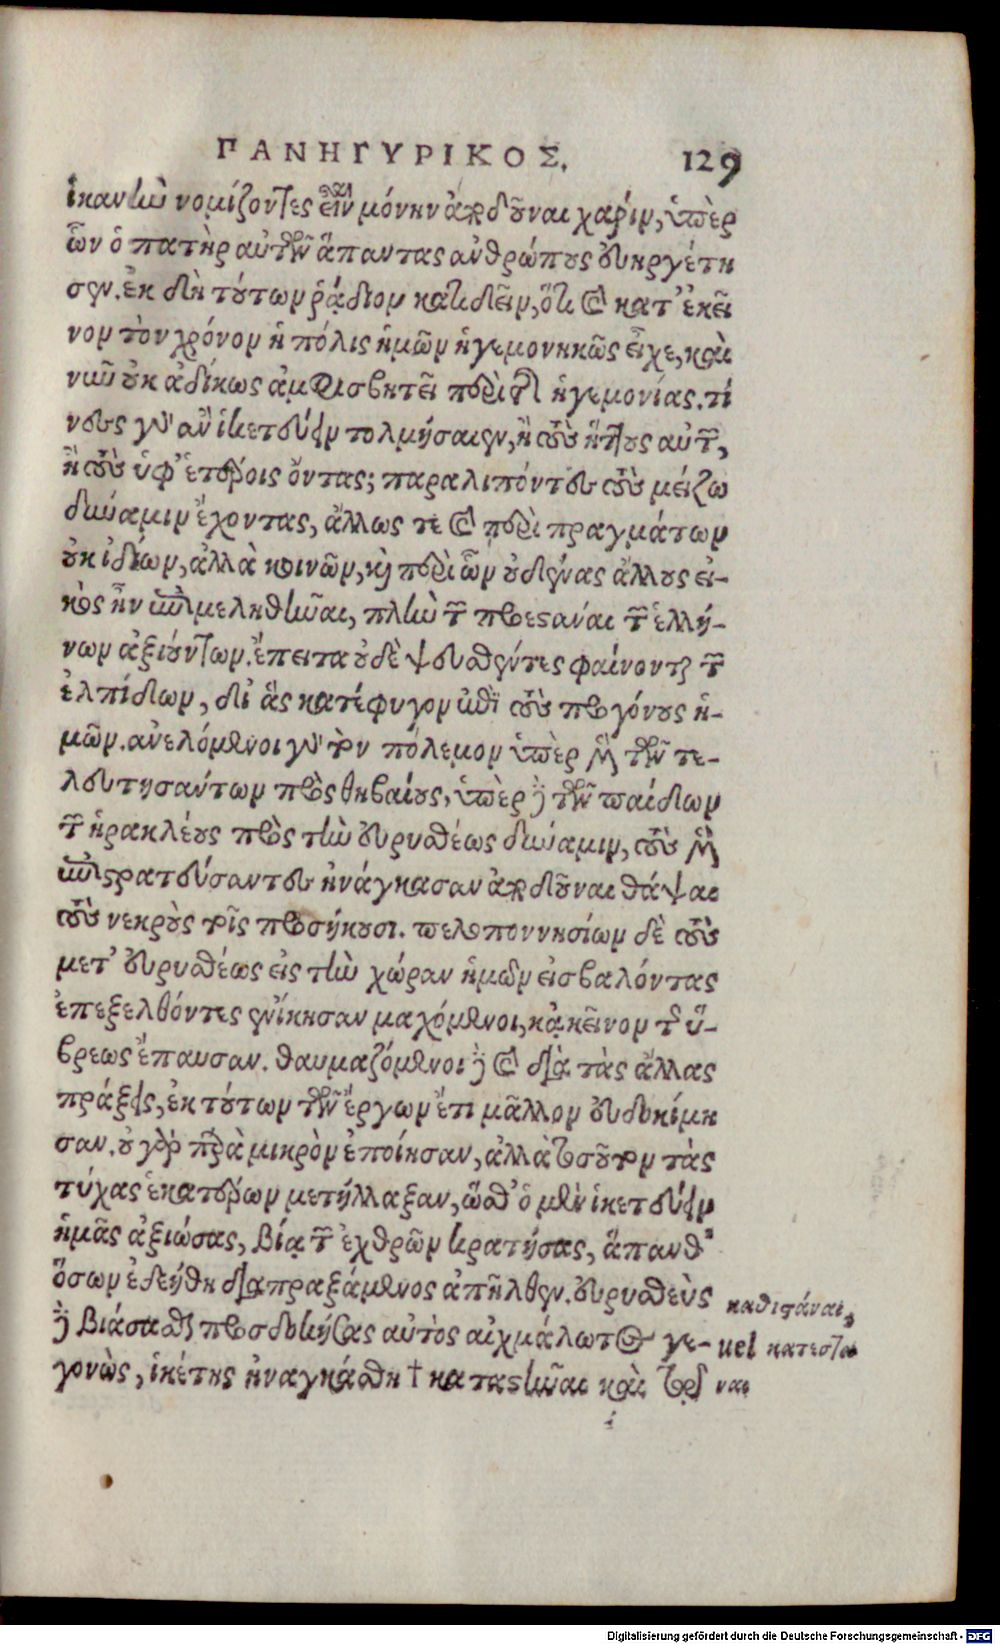 ΠΑΝΗΓΥΡΙΚΟΣ. 129
ἱκανὴν νομίζοντες εἶναι μόνην ἀποδοῦναι χάριν, ὑπὲρ
ὧν ὁ πατὴρ αὐτῶν ἅπαντας ἀνθρώπους εὐηργέτη
σεν. ἐκ δὴ τούτων ῥᾴδιον κατιδεῖν, ὅτι καὶ κατ' ἐκεῖ
νον τὸν χρόνον ἡ πόλις ἡμῶν ἡγεμονηκῶς εἶχε, καὶ
νῦν οὐκ ἀδίκως ἀμφισβητεῖ περὶ τῆς ἡγεμονίας. τί
νες γὰρ ἂν ἱκετεύειν τολμήσαιεν, ἢ τοὺς ἥττους αὐτῶν,
ἢ τοὺς ὑφ' ἑτέροις ὄντας; παραλιπόντες τοὺς μείζω
δύναμιν ἔχοντας, ἄλλως τε καὶ περὶ πραγμάτων
οὐκ ἰδίων, ἀλλὰ κοινῶν, καὶ περὶ ὧν οὐδένας ἄλλους εἰ-
κὸς ἦν ἐπιμεληθῆναι, πλὴν τῶν προεστάναι τῶν ἑλλή-
νων ἀξιούντων. ἔπειτα οὐδὲ ψευσθέντες φαίνονται τῶν
ἐλπίδων, δι' ἃς κατέφυγον ἐπὶ τοὺς προγόνους ἡ-
μῶν. ἀνελόμενοι γὰρ τὸν πόλεμον ὑπὲρ μὲν τῶν τε-
λευτησάντων πρὸς θηβαίους, ὑπὲρ δὲ τῶν παίδων
τῶν ἡρακλέους πρὸς τὴν εὐρυσθέως δύναμιν, τοὺς μὲν
ἐπιστρατεύσαντες ἠνάγκασαν ἀποδοῦναι θάψαι
τοὺς νεκροὺς τοῖς προσήκουσι. πελοποννησίων δὲ τοὺς
μετ' εὐρυσθέως εἰς τὴν χώραν ἡμῶν εἰσβαλόντας
ἐπεξελθόντες ἐνίκησαν μαχόμενοι, κἀκεῖνον τῆς ὕ-
βρεως ἔπαυσαν. θαυμαζόμενοι δὲ καὶ διὰ τὰς ἄλλας
πράξεις, ἐκ τούτων τῶν ἔργων ἔτι μᾶλλον εὐδοκίμη
σαν. οὐ γὰρ παρὰ μικρὸν ἐποίησαν, ἀλλὰ τοσοῦτον τὰς
τύχας ἑκατέρων μετήλλαξαν, ὥσθ' ὁ μὲν ἱκετεύειν
ἡμᾶς ἀξιώσας, βίᾳ τῶν ἐχθρῶν κρατήσας, ἅπανθ'
ὅσων ἐδεήθη διαπραξάμενος ἀπῆλθεν. εὐρυσθεὺς
δὲ βιάσασθαι προσδοκήσας αὐτὸς αἰχμάλωτος γε-
γονὼς, ἱκέτης ἠναγκάσθη † καταστῆναι καὶ τῷ
καθιστάναι,
uel κατεστά
ναι
i